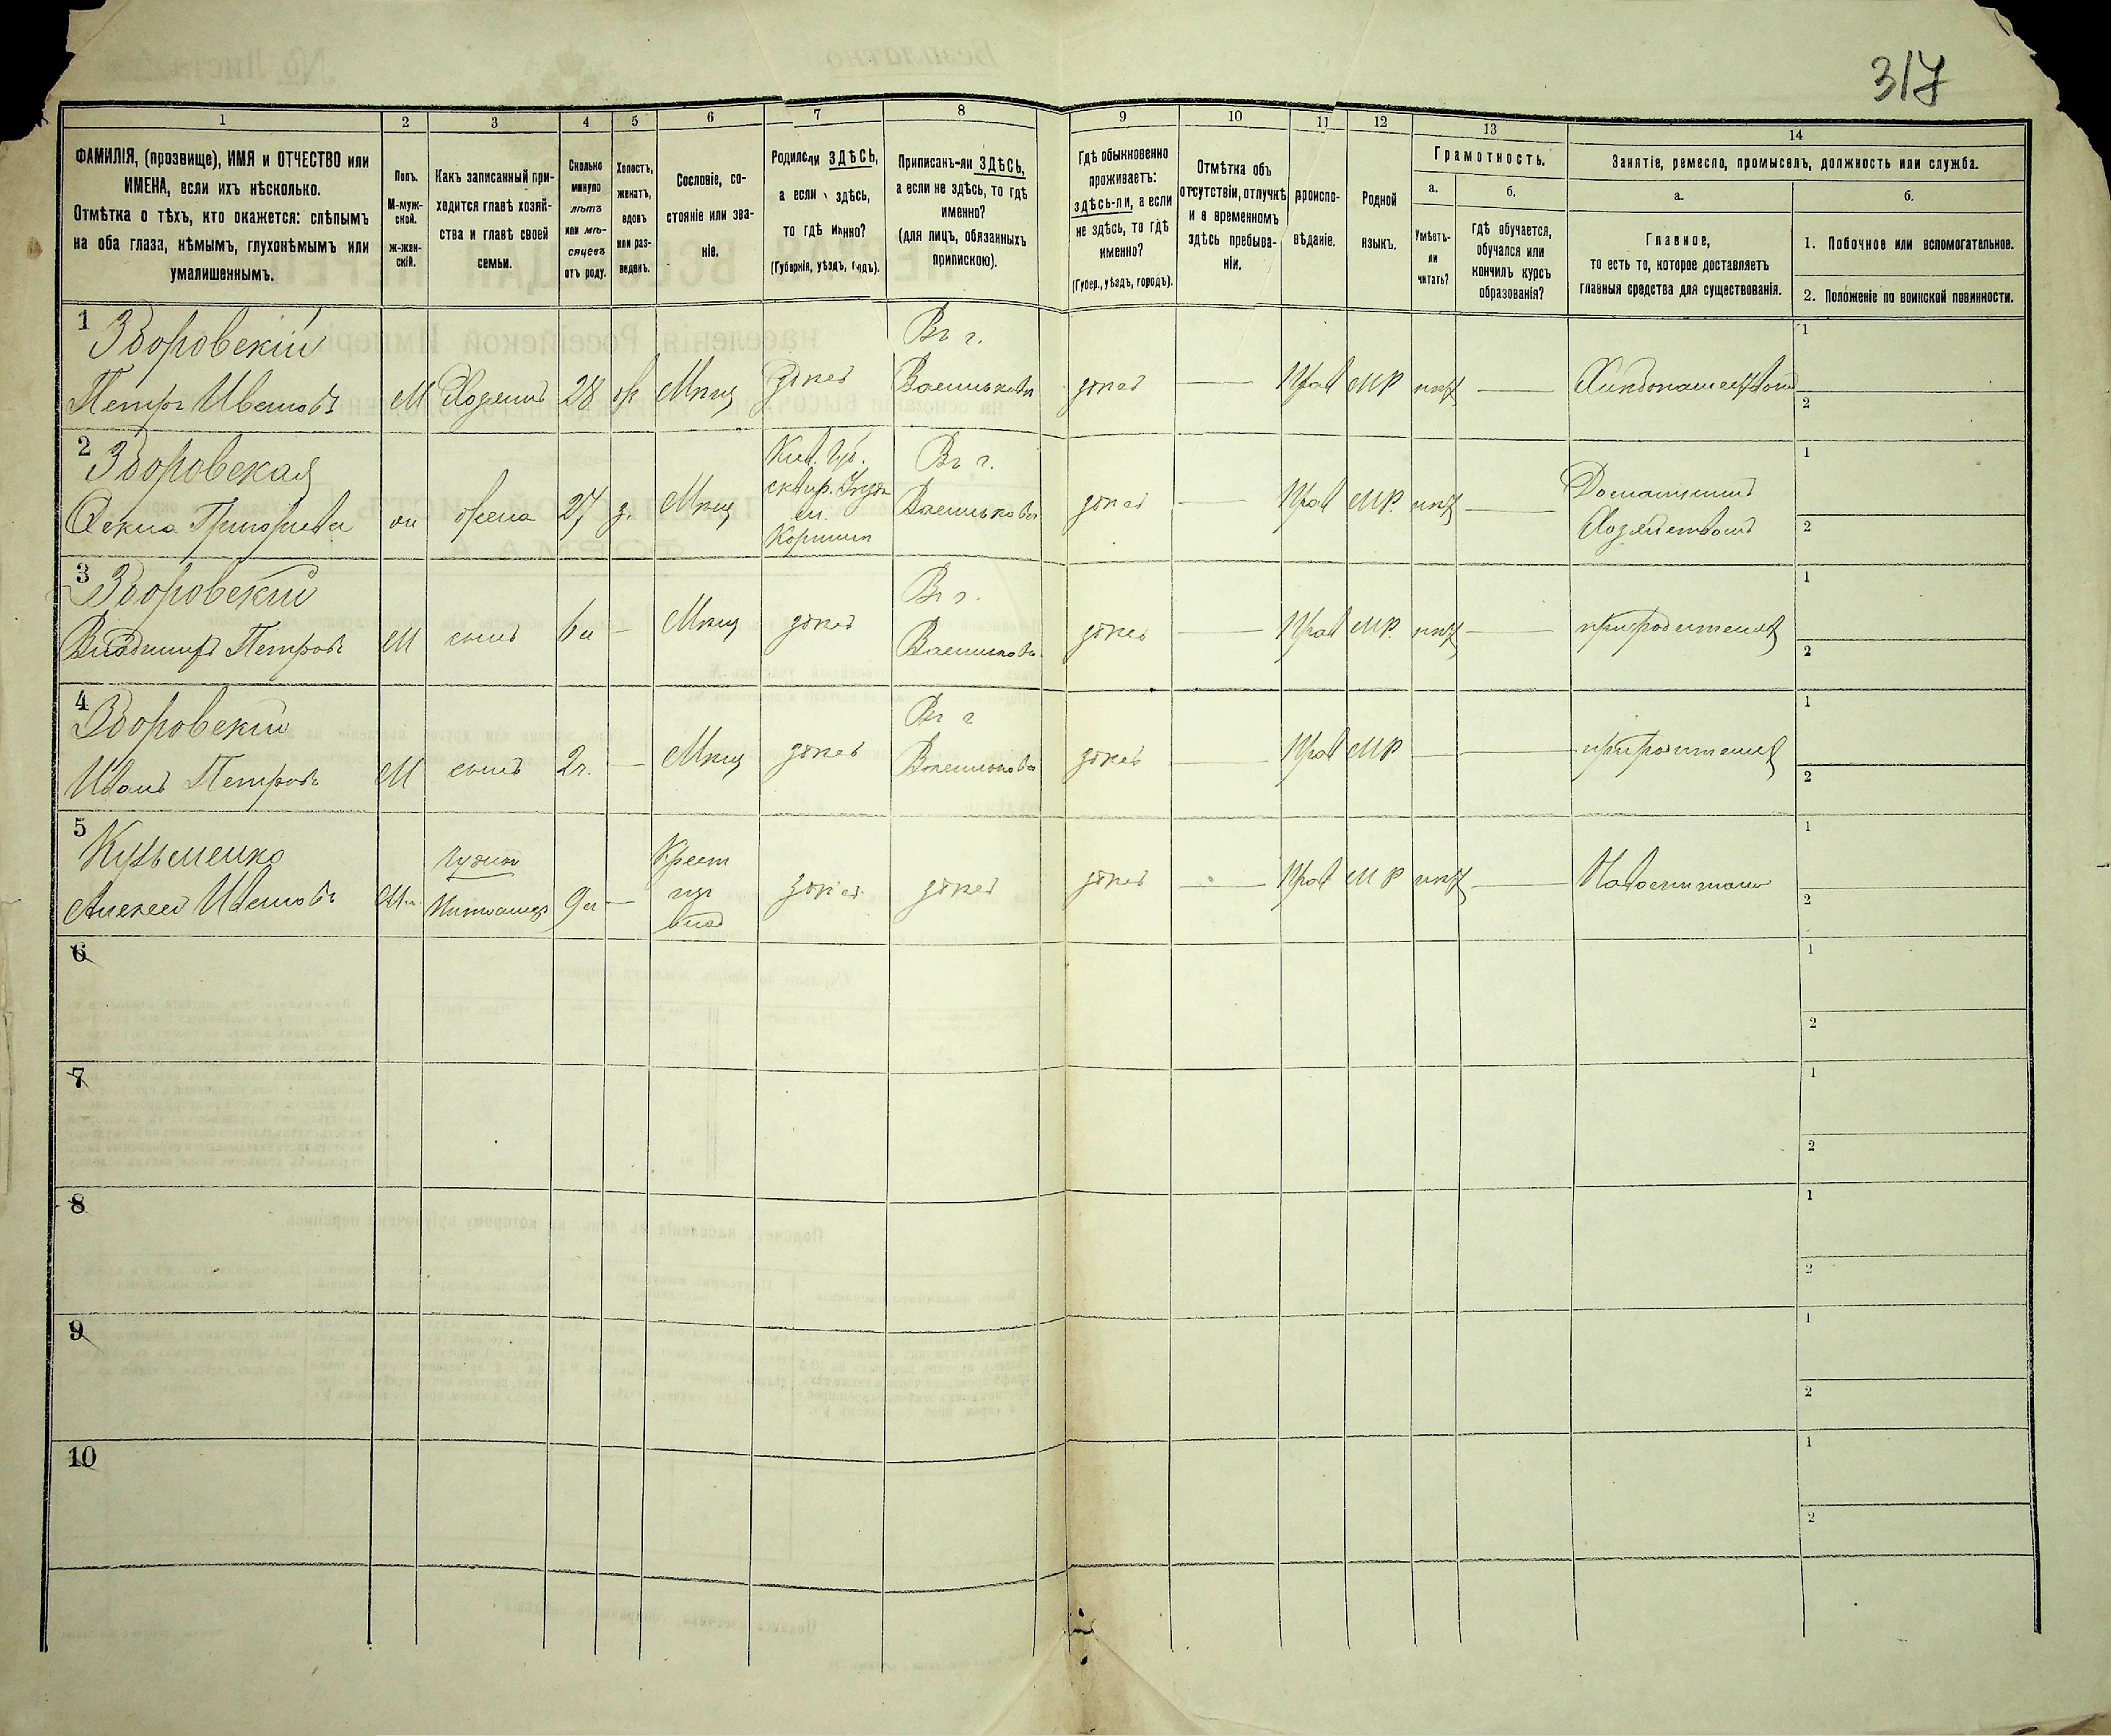 317
1
2
3
4
5
6
7
8
9
10
11
12
13
14
ФАМИЛІЯ, (прозвище), ИМЯ и ОТЧЕСТВО или
ИМЕНА, если ихъ нѣсколько.
Отмѣтка о тѣхъ, кто окажется: слѣпымъ
на оба глаза, нѣмымъ, глухонѣмымъ или
умалишеннымъ.
Полъ.
М-муж-
ской.
ж-жен-
скій.
Какъ записанный при-
ходится главѣ хозяй-
ства и главѣ своей
семьи.
Сколько
минуло
лѣтъ
или мѣ-
сяцевъ
отъ роду.
Холостъ,
женатъ,
вдовъ
или раз-
веденъ.
Сословіе, со-
стояніе или зва-
ніе.
Родился-ли ЗДѢСЬ,
а если здѣсь,
то гдѣ именно?
(Губернія, уѣздъ, городъ).
Приписанъ-ли ЗДѢСЬ,
а если не здѣсь, то гдѣ
именно?
(для лицъ, обязанныхъ
припискою).
Гдѣ обыкновенно
проживаетъ:
здѣсь-ли, а если
не здѣсь, то гдѣ
именно?
(Губер., уѣздъ, городъ).
Отмѣтка объ
отсутствіи, отлучкѣ
и о временномъ
здѣсь пребыва-
ніи.
Вѣроиспо-
вѣданіе.
Родной
языкъ.
Грамотность.
а.
Умѣетъ-
ли
читать?
б.
гдѣ обучается,
обучался или
кончилъ курсъ
образованія?
Занятіе, ремесло, промыселъ, должность или служба.
а.
Главное,
то есть то, которое доставляетъ
главныя средства для существованія.
б.
1. Побочное или вспомогательное.
2. Положеніе по воинской повинности.
1
Здоровскій
Петръ Ивановъ
М
Хозяинъ
28
ж
Мѣщ
здѣсь
Въ г.
Василькови
здѣсь
—
Прав
МР
нѣт
—
1
2
2
Здоровская
Григорьева
ж
жена
27
з.
Мѣщ
Кіев. губ.
сквир. уѣзд
Въ г.
Василькови
здѣсь
—
Прав
МР.
нѣт
—
Домашнимъ
Хозяйствомъ
1
2
3
Здоровскій
Владиміръ Петровъ
М
сынъ
6л
—
Мѣщ
здѣсь
Въ г.
Василькови
здѣсь
—
Прав
МР.
нѣт
—
при родителях
1
2
4
Здоровскій
Иванъ Петровъ
М
сынъ
2г.
—
Мѣщ
здѣсь
Въ г
Василькови
здѣсь
—
Прав
МР
—
—
при родителях
1
2
5
Кузьменко
Алексей Ивановъ
М
чужой
9л
—
Крест
из
влад
здѣсь
здѣсь
здѣсь
—
Прав
МР
нѣт
—
1
2
6
1
2
7
1
2
8
1
2
9
1
2
10
1
2